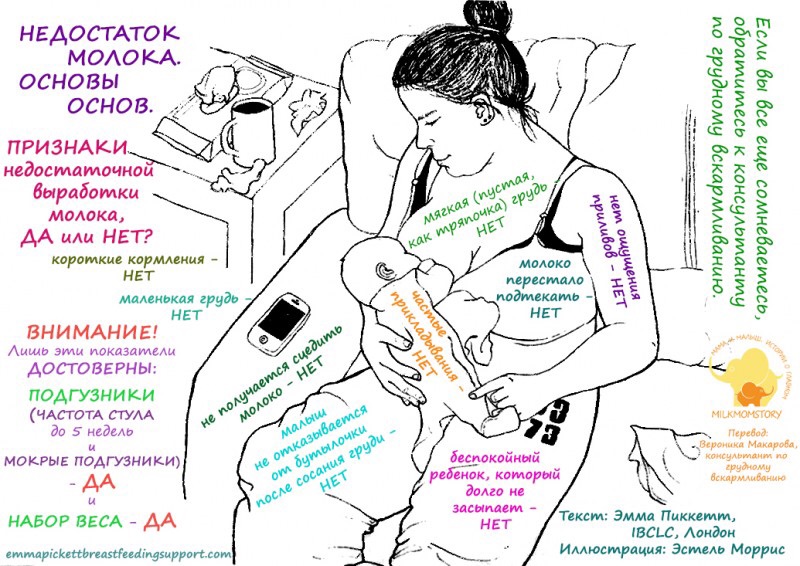 НЕДОСТАТОК
МОЛОКА.
ОСНОВЫ
ОСНОВ.
ПРИЗНАКИ
недостаточной
выработки
молока,
ДА или НЕТ?
короткие кормления -
НЕТ
маленькая грудь -
НЕТ
ВНИМАНИЕ!
Лишь эти показатели
ДОСТОВЕРНЫ:
ПОДГУЗНИКИ
(ЧАСТОТА СТУЛА
до 5 недель
и
МОКРЫЕ ПОДГУЗНИКИ)
- ДА
и
НАБОР ВЕСА - ДА
emmapickettbreastfeedingsupport.com
мягкая (пустая,
как тряпочка) грудь -
НЕТ
нет ощущения
приливов - НЕТ
молоко
перестало
подтекать -
НЕТ
частые
прикладывания -
НЕТ
не получается сцедить
молоко - НЕТ
малыш
не отказывается
от бутылочки
после сосания груди -
НЕТ
беспокойный
ребенок, который
долго не
засыпает -
НЕТ
73
Если вы все еще сомневаетесь,
обратитесь к консультанту
по грудному вскармливанию.
МАМА И МАЛЫШ. ИСТОРИИ О ГЛАВНОМ
MILKMOMSTORY
Перевод:
Вероника Макарова,
консультант по
грудному
вскармливанию
Текст: Эмма Пиккетт,
IBCLC, Лондон
Иллюстрация: Эстель Моррис